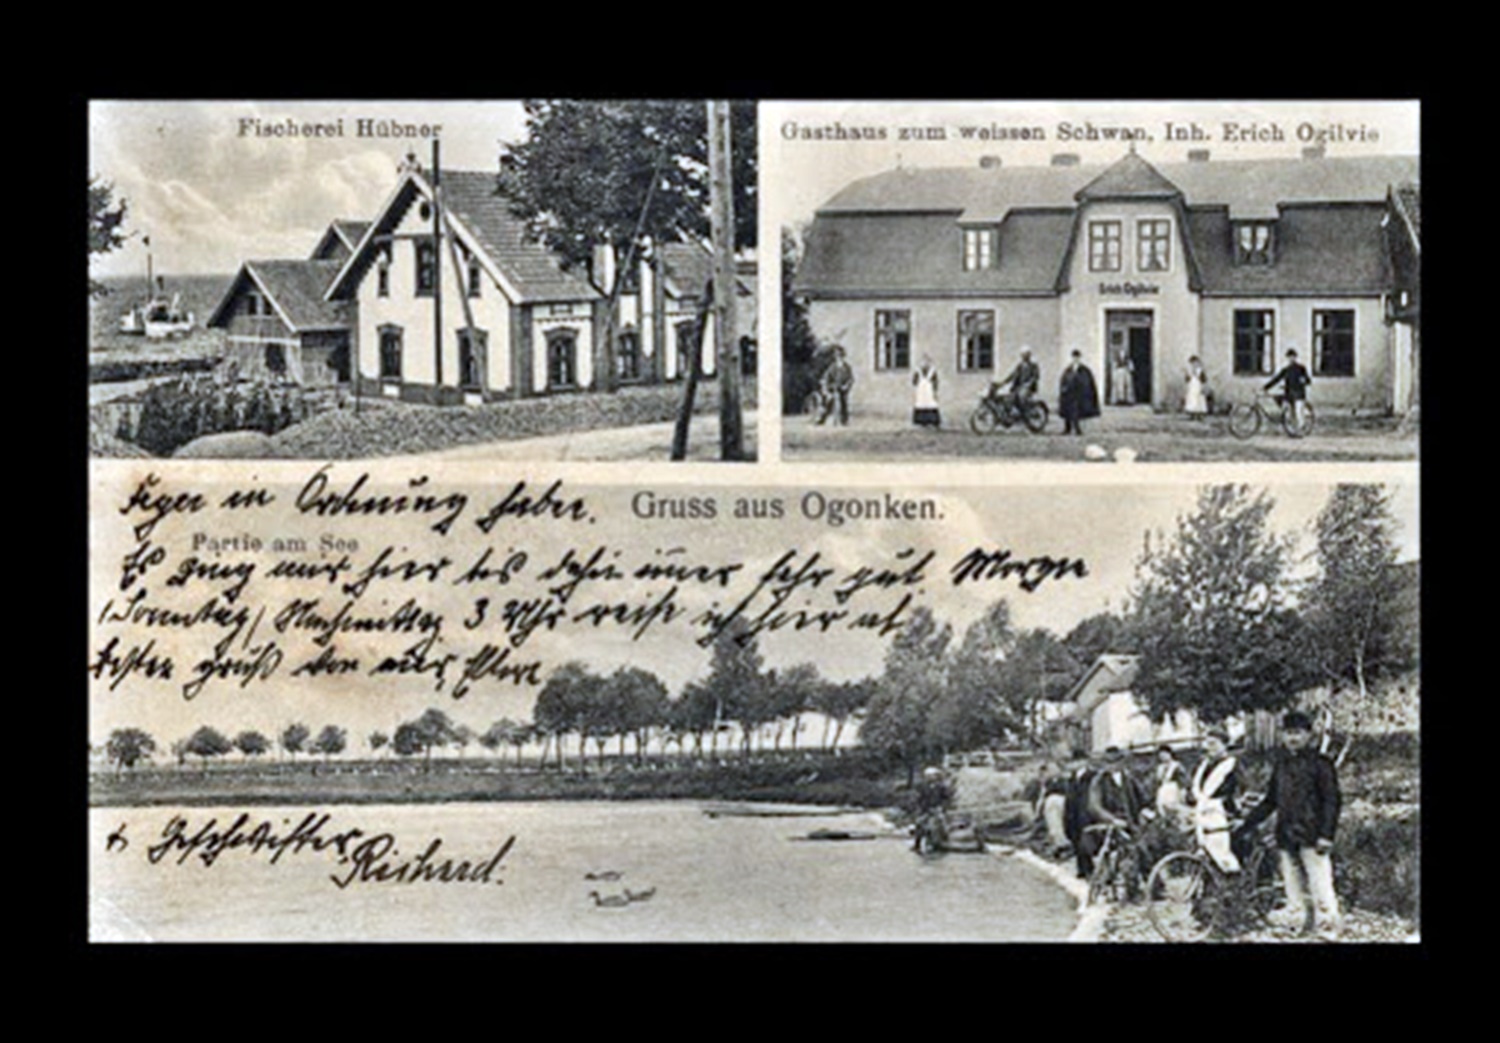 Fischerei Hübner
Gasthaus zum weissen Schwan, Inh. Erich Ogilvie
Erich Ogilvie
in Ordnung haben.
Gruss aus Ogonken.
Partie am See
Es ging mir hier bis dahin immer sehr gut Morgen
/Sonntag/ Nachmittag 3 Uhr reise ich hier ab
besten gruß von
& Geschwister
Richard.